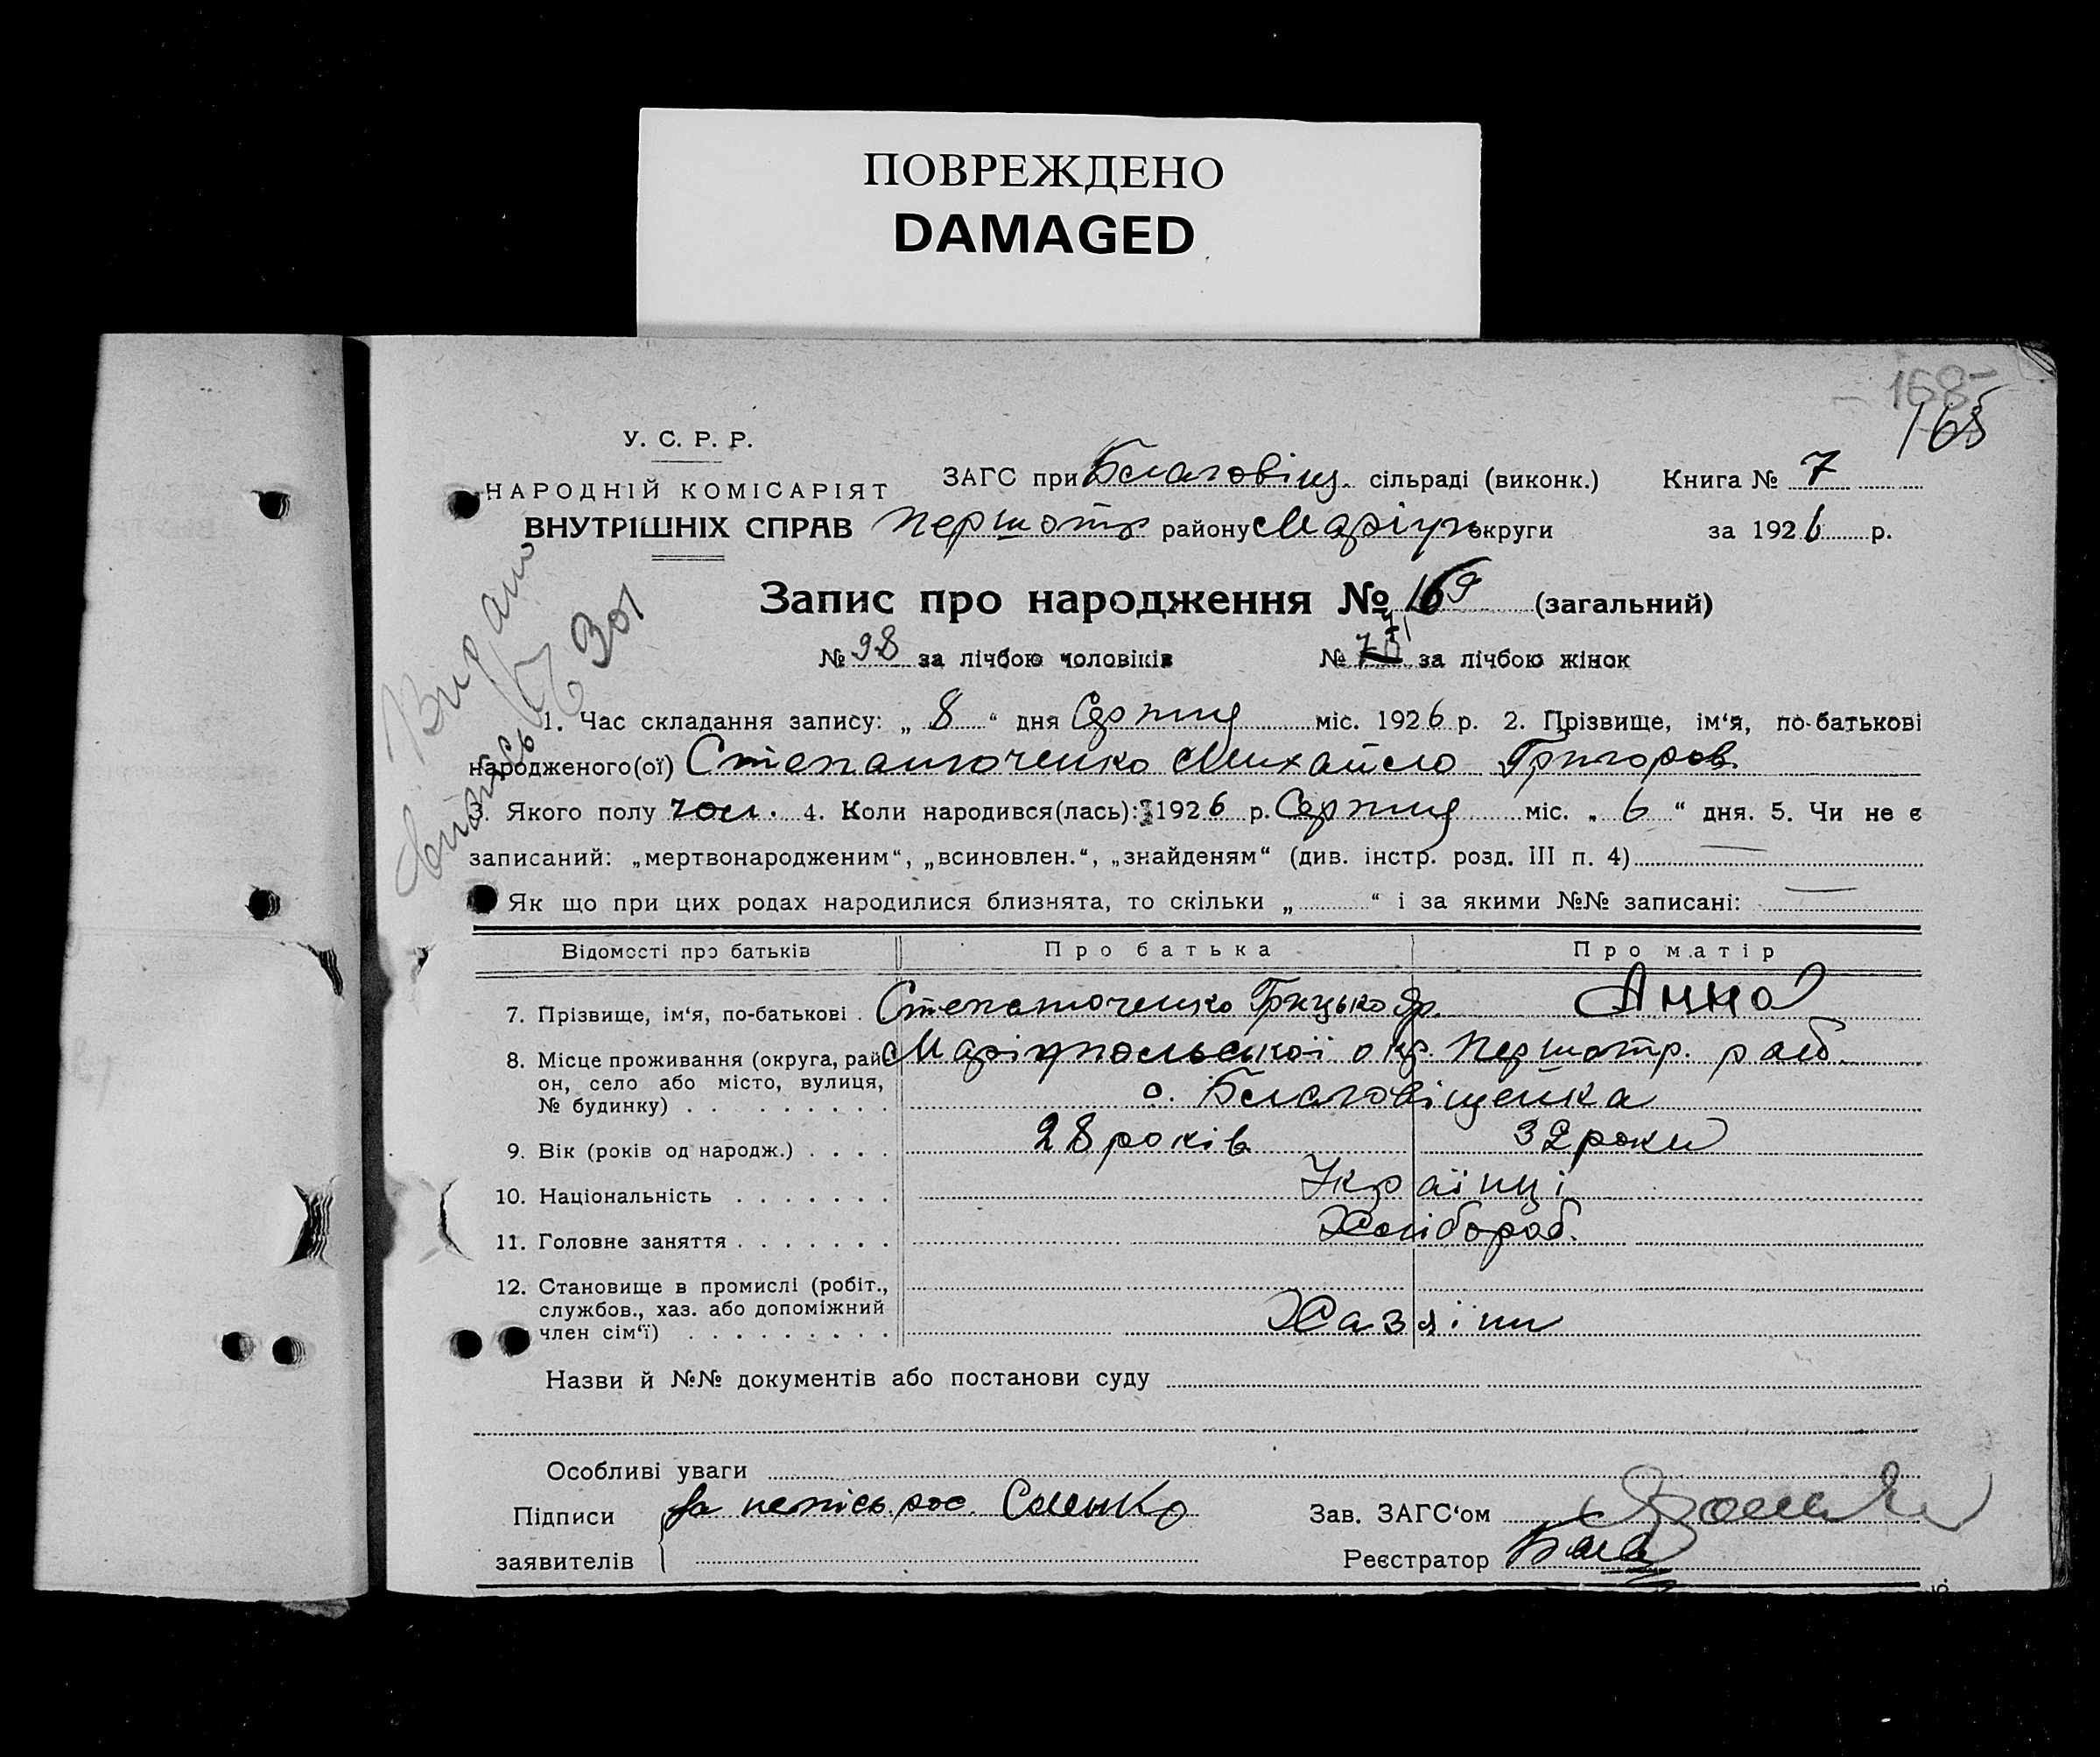 ПОВРЕЖДЕНО
DAMAGED
168
165
У. С. Р. Р.
НАРОДНІЙ КОМІСАРІЯТ
ВНУТРІШНІХ СПРАВ
ЗАГС при Благовіщ. сільраді (виконк.) Книга № 7
Першотр району Маріуп округи за 1926 р.
Запис про народження № 169 (загальний)
№ 98 за лічбою чоловіків № 71 за лічбою жінок
Видано
301
1. Час складання запису: „ 8 “ дня Серпня міс. 1926 р. 2. Прізвище, ім‘я, по-батькові
народженого(ої) Степанюченко Михайло Григоров.
3. Якого полу чол. 4. Коли народився(лась): 1926 р. Серпня міс. „ 6 “ дня. 5. Чи не є
записаний: „мертвонародженим“, „всиновлен.“, „знайденям“ (див. інстр. розд. III п. 4) —
Як що при цих родах народилися близнята, то скільки „ “ і за якими №№ записані: —
Відомості про батьків Про батька Про матір
7. Прізвище, ім‘я, по-батькові . Степанюченко Грицько Гр. Анна
8. Місце проживання (округа, рай- Маріупольської окр. Першотр. рай.
он, село або місто, вулиця,
№ будинку) . . . . . . . . . с. Благовіщенка
9. Вік (років од народж.) . . . . 28 років 32 роки
10. Національність . . . . . . . Українці
11. Головне заняття . . . . . . . Хлібороб.
12. Становище в промислі (робіт.,
службов., хаз. або допоміжний
член сім‘ї) . . . . . . . . . Хазяїни
Назви й №№ документів або постанови суду
Особливі уваги
Підписи за неписьм. рос. Сленко Зав. ЗАГС‘ом
заявителів Реєстратор